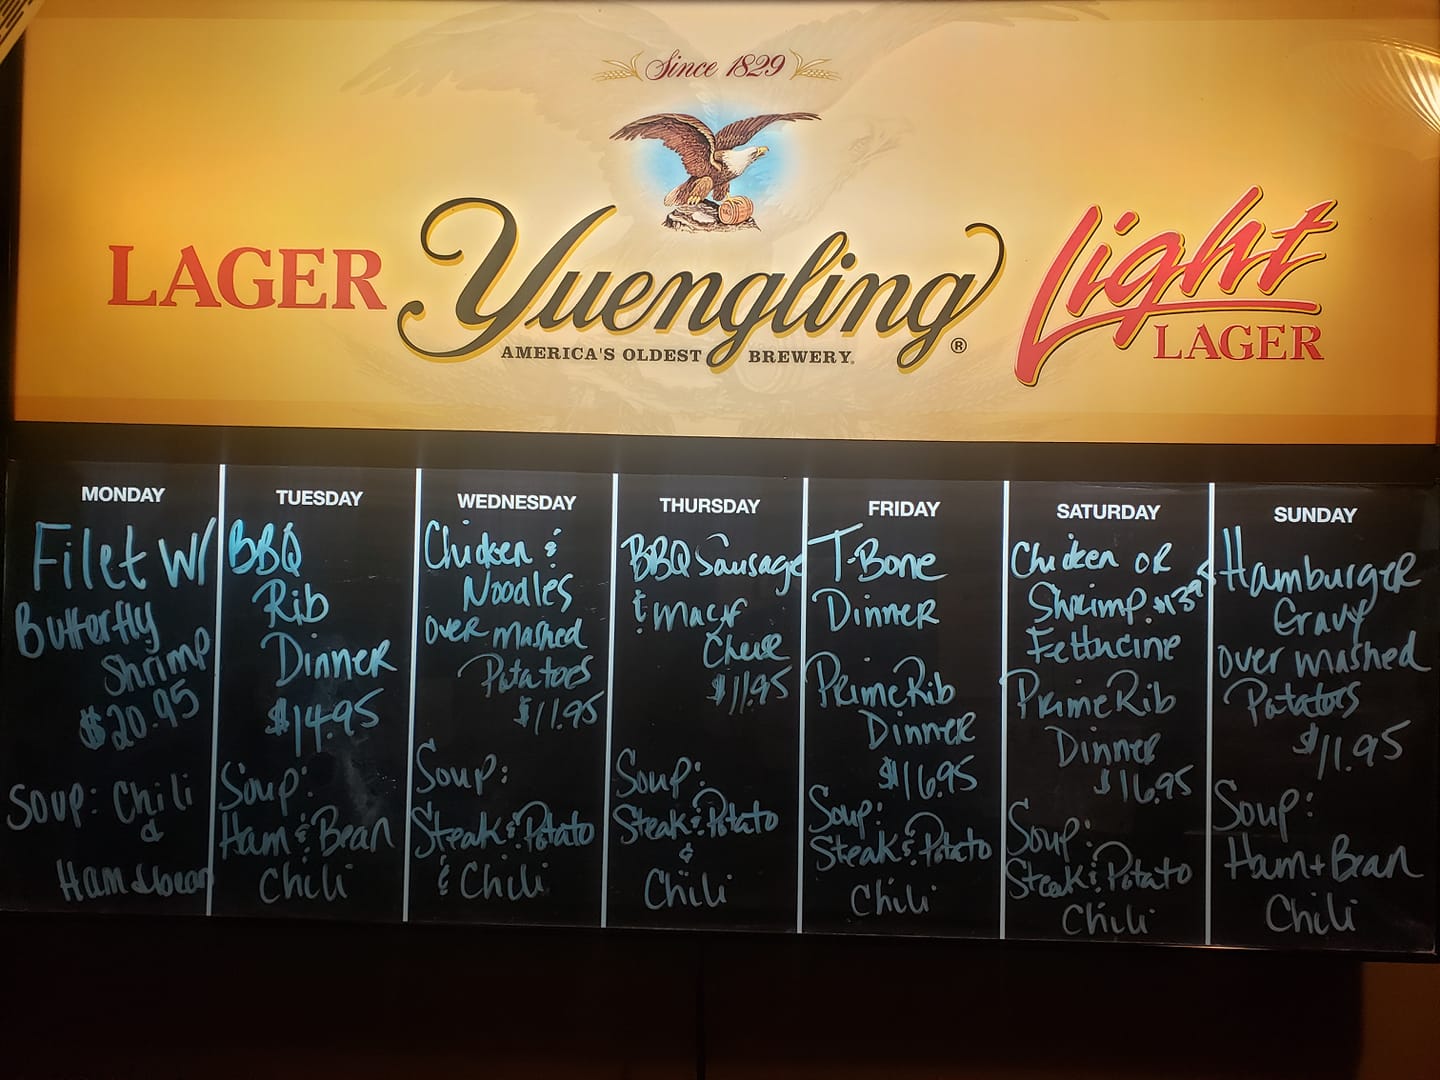 Since 1829
LAGER
Yuengling®
Light
LAGER
AMERICA'S OLDEST BREWERY.
MONDAY
Filet W/
Butterfly
Shrimp
$20.95
Soup: Chili
&
Ham & bean
TUESDAY
BBQ
Rib
Dinner
$14.95
Soup:
Ham & Bean
Chili
WEDNESDAY
Chicken &
Noodles
over mashed
Potatoes
$11.95
Soup:
Steak & Potato
& Chili
THURSDAY
BBQ Sausage
& Mac &
Cheese
$11.95
Soup:
Steak & Potato
&
Chili
FRIDAY
T-Bone
Dinner
Prime Rib
Dinner
$16.95
Soup:
Steak & Potato
Chili
SATURDAY
Chicken or
Shrimp $13.95
Fettucine
Prime Rib
Dinner
$16.95
Soup:
Steak & Potato
Chili
SUNDAY
Hamburger
Gravy
over mashed
Potatoes
$11.95
Soup:
Ham + Bean
Chili